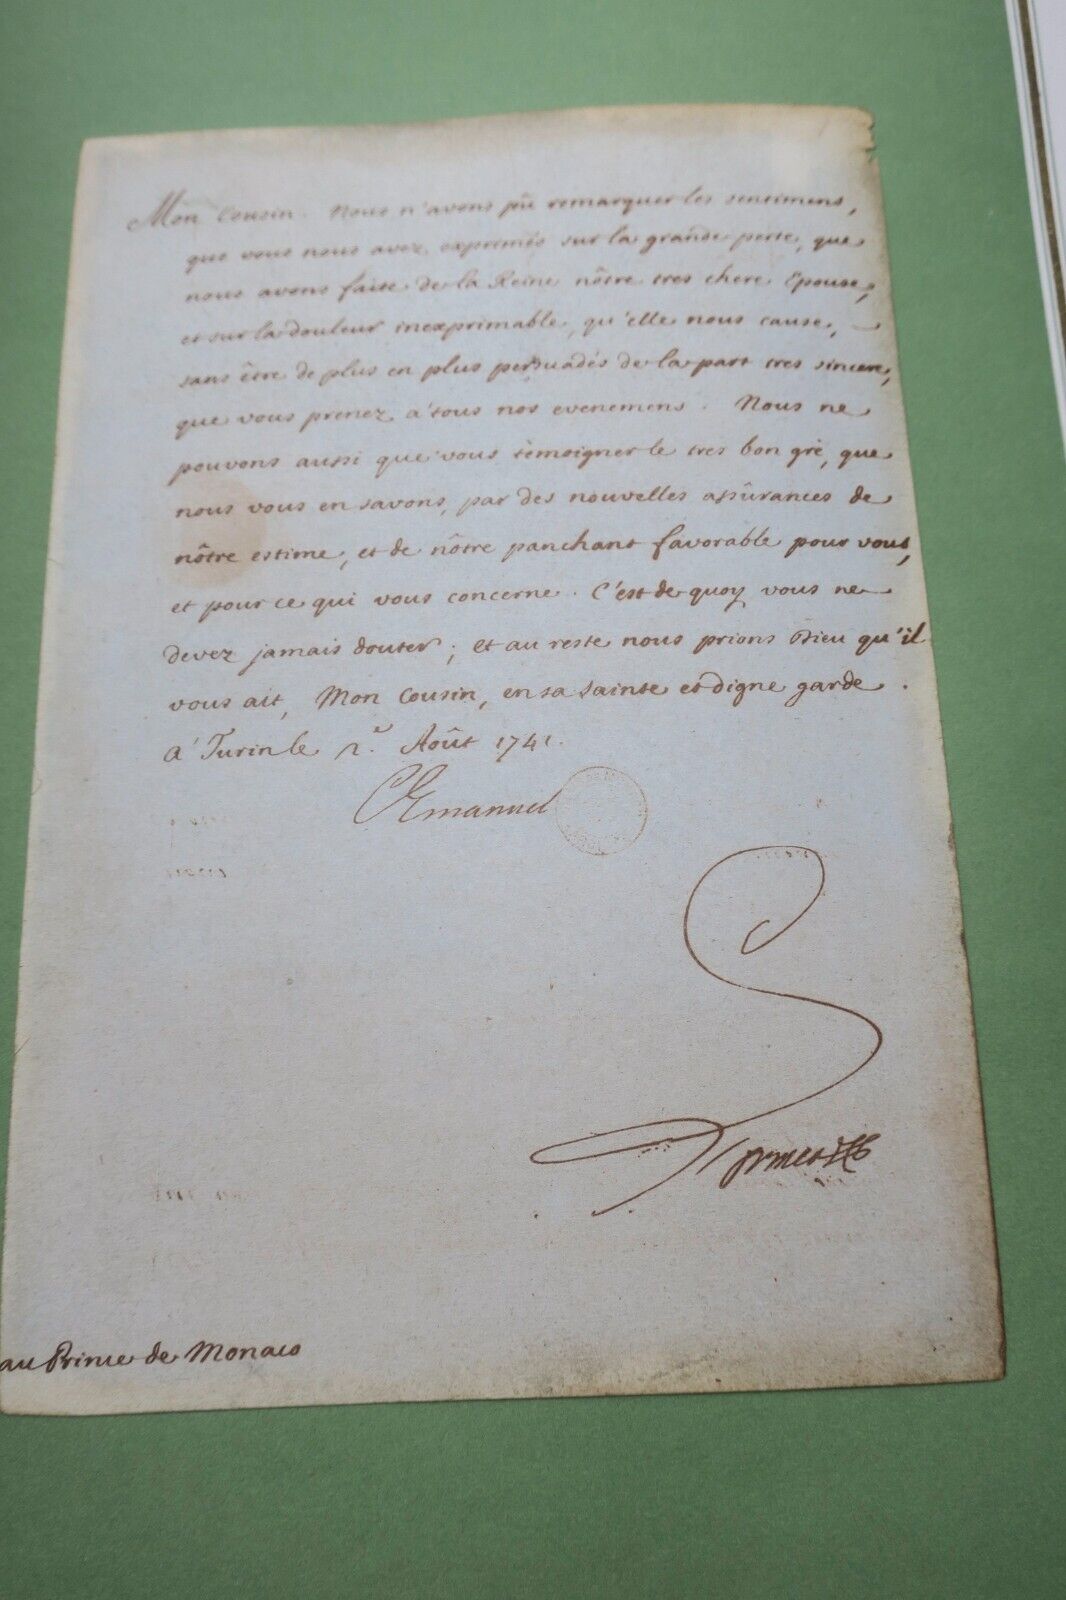 Mon Cousin. Nous n'avons pû remarquer les sentimens,
que vous nous avez exprimés sur la grande perte, que
nous avons faite de la Reine nôtre tres chere Epouse,
et sur la douleur inexprimable, qu'elle nous cause,
sans être de plus en plus persuadés de la part tres sincere,
que vous prenez à tous nos evenemens. Nous ne
pouvons aussi que vous témoigner le tres bon gré, que
nous vous en savons, par des nouvelles assûrances de
nôtre estime, et de nôtre panchant favorable pour vous,
et pour ce qui vous concerne. C'est de quoy vous ne
devez jamais douter; et au reste nous prions Dieu qu'il
vous ait, Mon Cousin, en sa sainte et digne garde.
à Turin le Août 1741.
CEmanuel
au Prince de Monaco